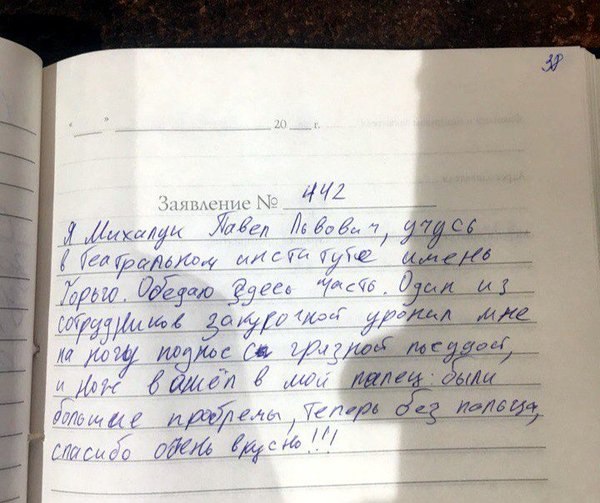 38
" " 20 г.
Заявление № 442
Я Михалун Павел Львович, учусь
в театральном институте имень
Горьго. Обедаю здесь часть. Один из
сотрудников закурочной уронил мне
на ногу поднос с грязной посудой,
и нож вошёл в мой палец были
большие проблемы, теперь без пальца,
спасибо очень вкусно!!!